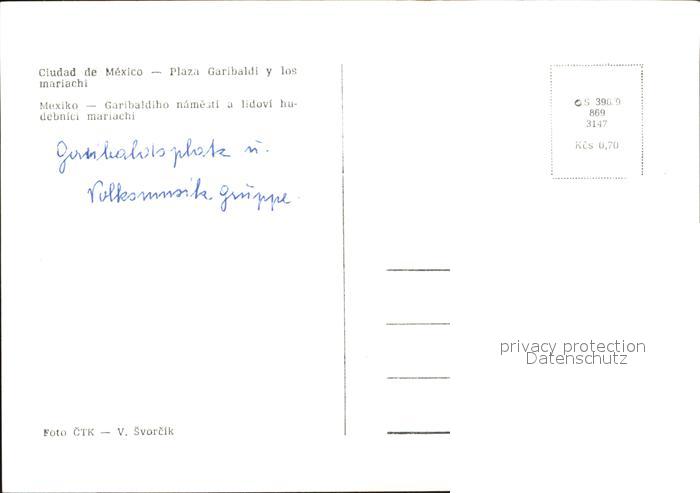 Ciudad de México — Plaza Garibaldi y los
mariachi
Mexiko — Garibaldiho náměstí a lidoví hu-
debníci mariachi
Garibaldisplatz u.
Volksmusik Gruppe
Foto ČTK — V. Švorčík
S 398/9
869
3147
Kčs 0,70
privacy protection
Datenschutz